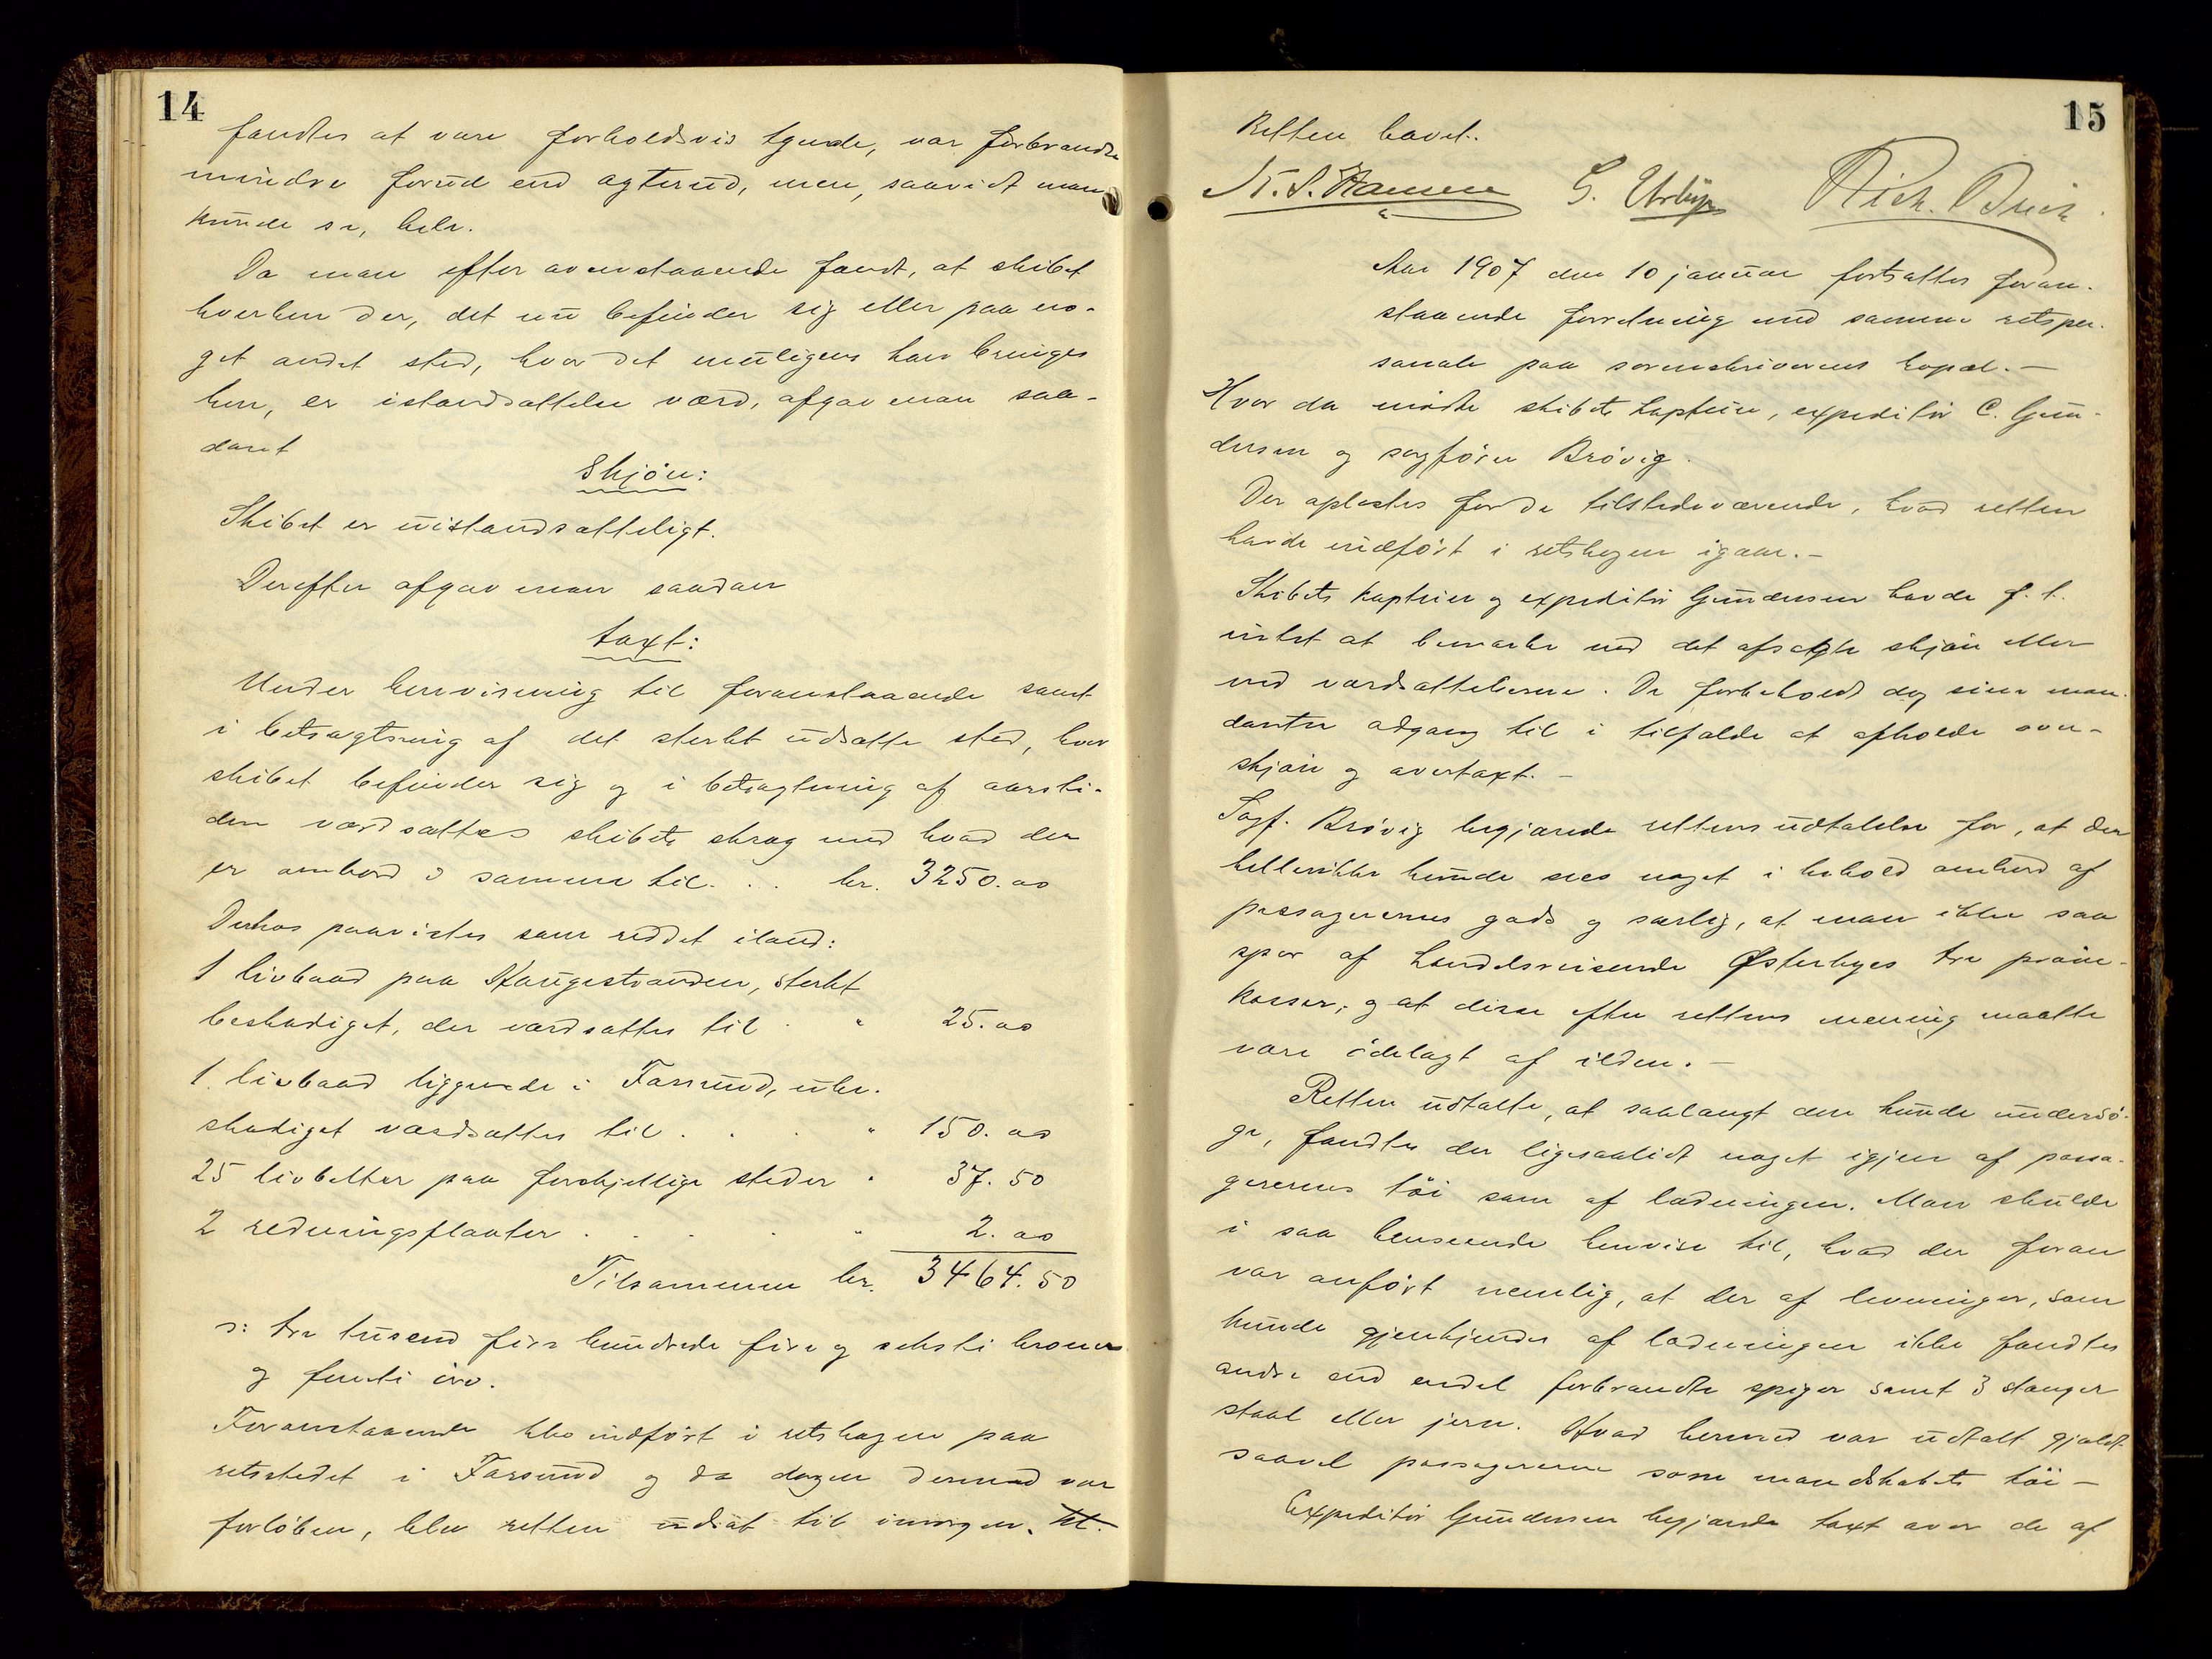 14
fandtes at være forholdsvis tynde, var forbrændte
mindre forud end agterud, men, saavidt man
kunde se, hele.
Da man efter ovenstaaende fandt, at skibet
hverken der, det nu befinder sig eller paa no-
get andet sted, hvor det muligens kan bringes
hen, er istandsættelse værd, afgav man saa-
dant
Skjön:
Skibet er uistandsætteligt.
Derefter afgav man saadan
taxt:
Under henvisning til foranstaaende samt
i betragtning af det sterkt udsatte sted, hvor
skibet befinder sig og i betragtning af aarsti-
den værdsættes skibets skrog med hvad der
er ombord i samme til . . . kr. 3250.00
Derhos paavistes som reddet iland:
1 livbaad paa Haugestranden, sterkt
beskadiget, der værdsattes til . " 25.00
1 livbaad liggende i Farsund, ube-
skadiget værdsattes til . . . " 150.00
25 livbelter paa forskjellige steder " 37.50
2 redningsflaater . . . . " 2.00
Tilsammen kr. 3464.50
ɔ: tre tusend fire hundrede fire og seksti kroner
og femti öre.
Foranstaaende blev indført i retsbogen paa
retsstedet i Farsund og da dagen dermed var
forløben, blev retten udsat til imorgen.
15
Retten hævet.
N. S. Hansen G. Rich. Buch.
Aar 1907 den 10 januar fortsattes foran-
staaende forretning med samme retsper-
sonale paa sorenskriverens bopæl. —
Hvor da mødte skibets kaptein, expeditör C. Gun-
dersen og sagförer Brövig.
Der oplæstes for de tilstedeværende, hvad retten
havde indfört i retsbogen igaar. —
Skibets kaptein og expeditör Gundersen havde f. t.
intet at bemærke ved det afsagte skjön eller
ved værdsættelserne. De forbeholdt dog sine man-
danter adgang til i tilfælde at afholde over-
skjön og overtaxt. —
Sagf. Brövig begjærede rettens udtalelse for, at der
hellerikke kunde sees noget i behold ombord af
passagerernes gods og særlig, at man ikke saa
spor af handelsreisende Østerbyes tre pröve-
kasser; og at disse efter rettens mening maatte
være ödelagt af ilden. —
Retten udtalte, at saalangt den kunde undersö-
ge, fandtes der ligesaalidt noget igjen af passa-
gerernes töi som af ladningen. Man skulde
i saa henseende henvise til, hvad der foran
var anfört nemlig, at der af levninger, som
kunde gjenkjendes af ladningen ikke fandtes
andre end endel forbrændte spiger samt 3 stanger
staal eller jern. Hvad herved var udtalt gjaldt
saavel passagerernes som mandskabets töi —
Expeditör Gundersen begjærede taxt over de af